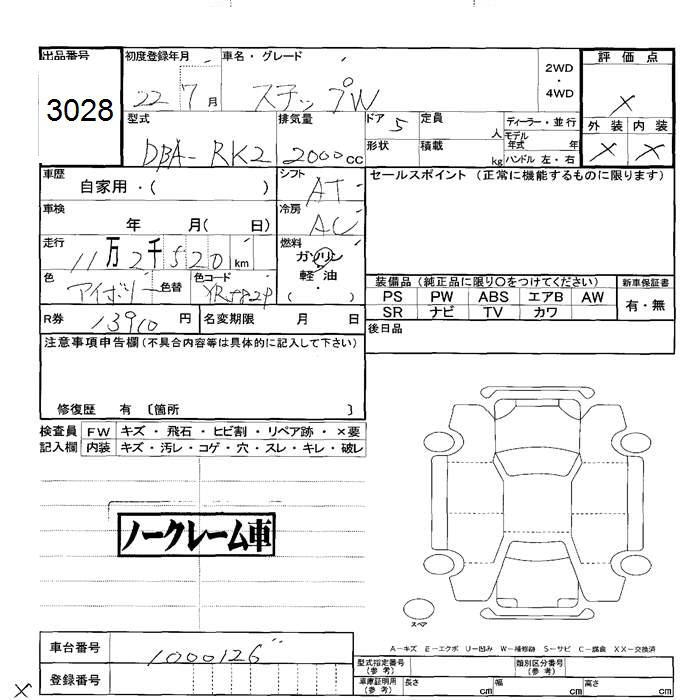 出品番号 初度登録年月 車名・グレード 2WD・4WD 評価点
3028 22 7月 ステップW ×
型式 排気量 ドア 5 定員 人 ディーラー・並行 外装 内装
DBA-RK2 2000cc 形状 積載 kg モデル年式 年 ハンドル 左・右 × ×
車歴 シフト セールスポイント (正常に機能するものに限ります)
自家用・( ) AT
車検 年 月( 日) 冷房 AC
走行 11万2千520km 燃料 ガソリン
軽油
・
( )
色 アイボリー 色替 色コード 装備品 (純正品に限り○をつけてください) 新車保証書
PS PW ABS エアB AW 有・無
SR ナビ TV カワ
R券 13910円 名変期限 月 日 後日品
注意事項申告欄(不具合内容等は具体的に記入して下さい)
修復歴 有 〔箇所 〕
検査員 FW キズ・飛石・ヒビ割・リペア跡・×要
記入欄 内装 キズ・汚レ・コゲ・穴・スレ・キレ・破レ
ノークレーム車
スペア
A-キズ E-エクボ U-凹み W-補修跡 S-サビ C-腐食 XX-交換済
車台番号 1000126
型式指定番号(参考) 類別区分番号(参考)
登録番号 車庫証明用(参考) 長さ cm 幅 cm 高さ cm
×